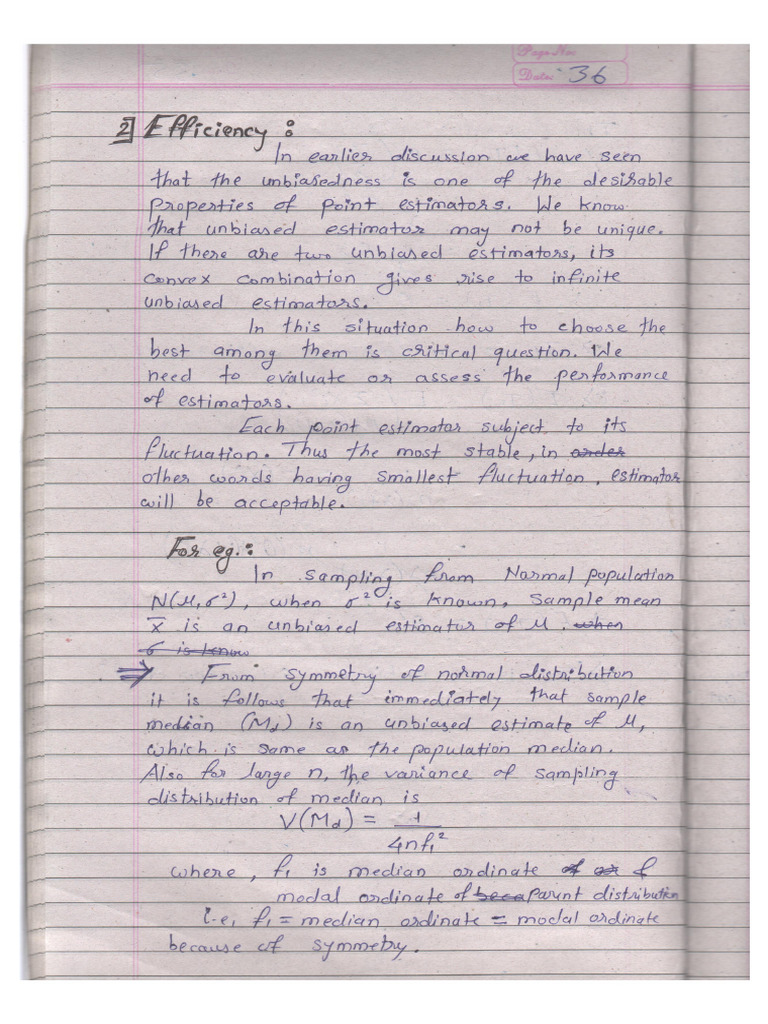 Page No:
Date: 36
2] Efficiency :
In earlier discussion we have seen
that the unbiasedness is one of the desirable
properties of point estimators. We know
that unbiased estimator may not be unique.
If there are two unbiased estimators, its
convex combination gives rise to infinite
unbiased estimators.
In this situation how to choose the
best among them is critical question. We
need to evaluate or assess the performance
of estimators.
Each point estimator subject to its
fluctuation. Thus the most stable, in order
other words having smallest fluctuation, estimator
will be acceptable.
For eg.:
In sampling from Normal population
N(μ,σ²), when σ² is known. Sample mean
x̄ is an unbiased estimator of μ. when
σ is know
⇒ From symmetry of normal distribution
it is follows that immediately that sample
median (Md) is an unbiased estimate of μ,
which is same as the population median.
Also for large n, the variance of sampling
distribution of median is
V(Md) = 1
4nf₁²
where, f₁ is median ordinate of or f
modal ordinate of beca parent distribution
i.e, f₁ = median ordinate = modal ordinate
because of symmetry.